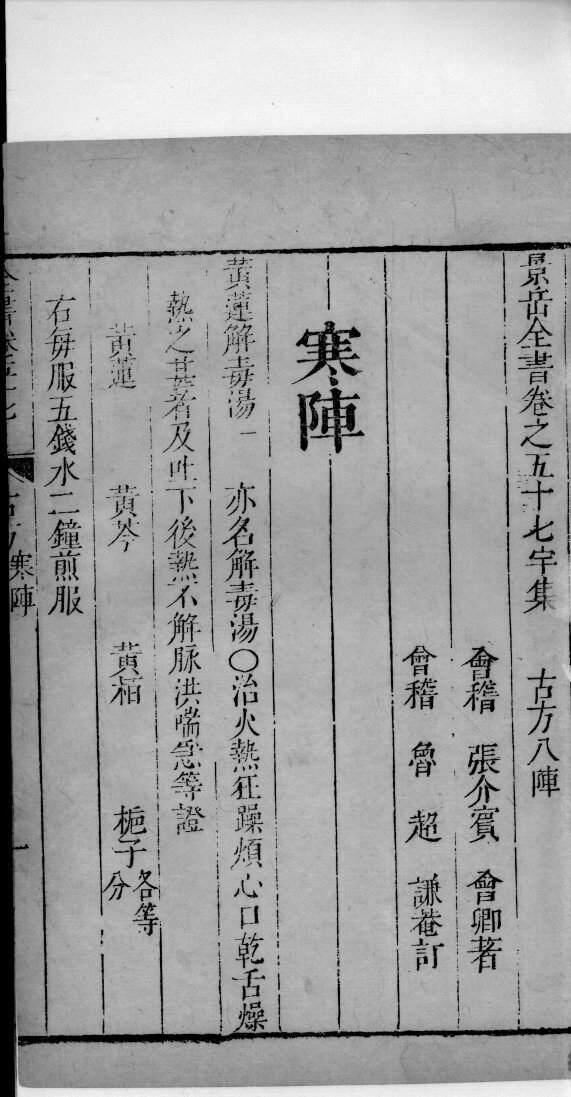 景岳全書卷之五十七宇集　古方八陣
會稽　張介賓　會卿著
會稽　魯　超　謙菴訂
寒陣
黃蓮解毒湯一　亦名解毒湯○治火熱狂躁煩心口乾舌燥
熱之甚者及吐下後熱不解脉洪喘急等證
黃蓮　黃芩　黃栢　梔子各等分
右每服五錢水二鐘煎服
全書卷五十七　古方寒陣　一